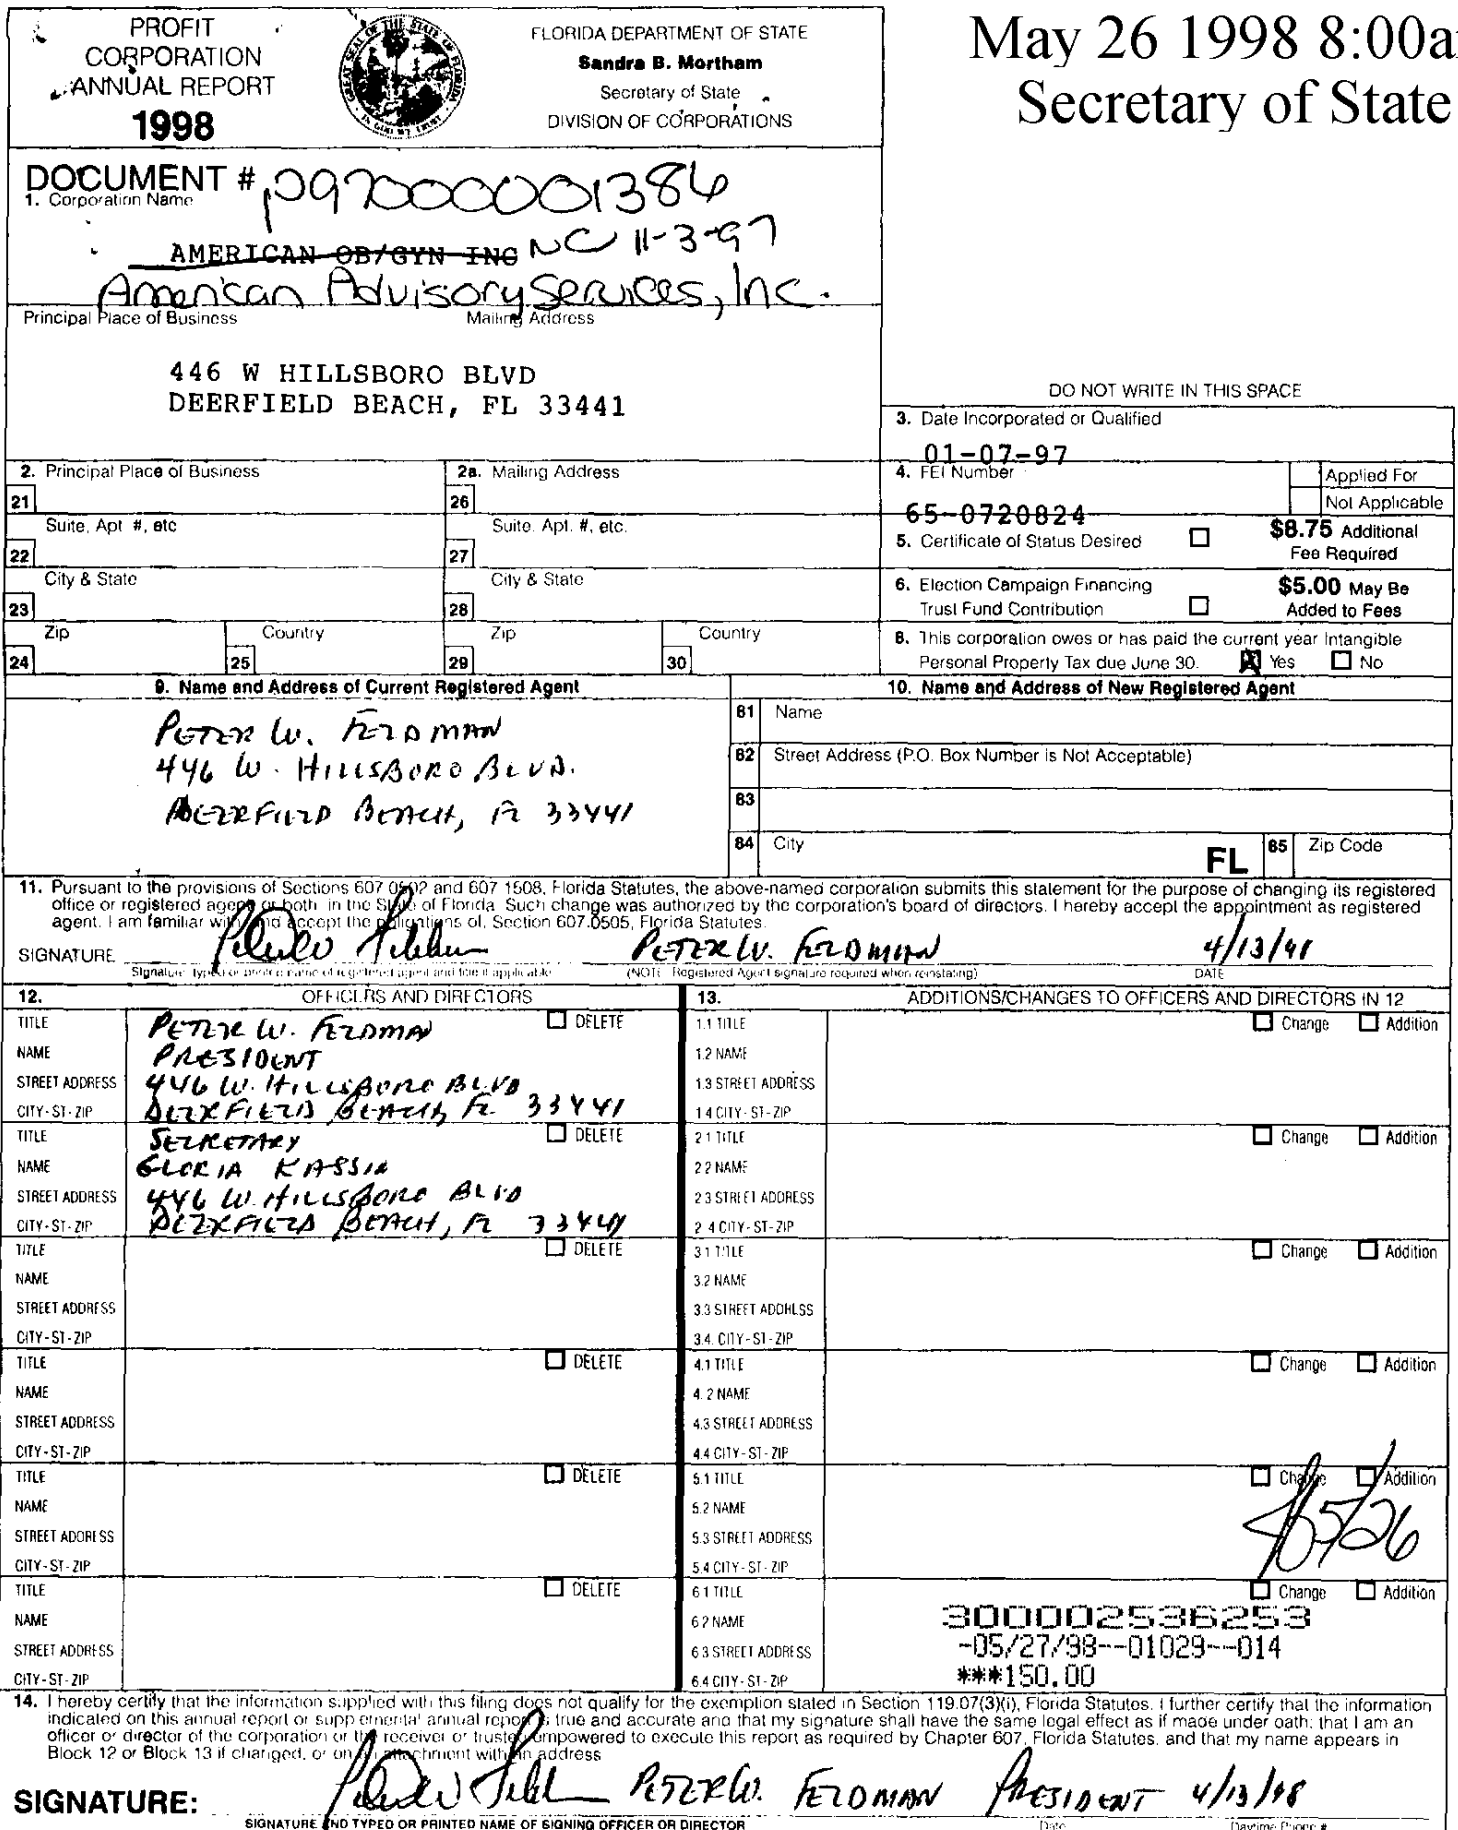 PROFIT
CORPORATION
ANNUAL REPORT
1998
FLORIDA DEPARTMENT OF STATE
Sandra B. Mortham
Secretary of State
DIVISION OF CORPORATIONS
May 26 1998 8:00a
Secretary of State
DOCUMENT # P97000001386
1. Corporation Name
AMERICAN OB/GYN INC NC 11-3-97
American Advisory Services, Inc.
Principal Place of Business Mailing Address
446 W HILLSBORO BLVD
DEERFIELD BEACH, FL 33441
DO NOT WRITE IN THIS SPACE
3. Date Incorporated or Qualified
01-07-97
2. Principal Place of Business
21
2a. Mailing Address
26
4. FEI Number
65-0720824
Applied For
Not Applicable
Suite, Apt #, etc
22
Suite, Apt. #, etc.
27
5. Certificate of Status Desired
$8.75 Additional
Fee Required
City & State
23
City & State
28
6. Election Campaign Financing
Trust Fund Contribution
$5.00 May Be
Added to Fees
Zip
24
Country
25
Zip
29
Country
30
8. This corporation owes or has paid the current year Intangible
Personal Property Tax due June 30. Yes No
9. Name and Address of Current Registered Agent
PETER W. FELDMAN
446 W. HILLSBORO BLVD.
DEERFIELD BEACH, FL 33441
10. Name and Address of New Registered Agent
81 Name
82 Street Address (P.O. Box Number is Not Acceptable)
83
84 City FL 85 Zip Code
11. Pursuant to the provisions of Sections 607.0502 and 607.1508, Florida Statutes, the above-named corporation submits this statement for the purpose of changing its registered
office or registered agent, or both, in the State of Florida. Such change was authorized by the corporation's board of directors. I hereby accept the appointment as registered
agent. I am familiar with, and accept the obligations of, Section 607.0505, Florida Statutes.
SIGNATURE PETER W. FELDMAN 4/13/98
Signature, typed or printed name of registered agent and title if applicable (NOTE: Registered Agent signature required when reinstating) DATE
12. OFFICERS AND DIRECTORS
13. ADDITIONS/CHANGES TO OFFICERS AND DIRECTORS IN 12
TITLE PETER W. FELDMAN DELETE
NAME PRESIDENT
STREET ADDRESS 446 W. HILLSBORO BLVD
CITY-ST-ZIP DEERFIELD BEACH, FL 33441
1.1 TITLE Change Addition
1.2 NAME
1.3 STREET ADDRESS
1.4 CITY-ST-ZIP
TITLE SECRETARY DELETE
NAME GLORIA KASSIN
STREET ADDRESS 446 W. HILLSBORO BLVD
CITY-ST-ZIP DEERFIELD BEACH, FL 33441
2.1 TITLE Change Addition
2.2 NAME
2.3 STREET ADDRESS
2.4 CITY-ST-ZIP
TITLE DELETE
NAME
STREET ADDRESS
CITY-ST-ZIP
3.1 TITLE Change Addition
3.2 NAME
3.3 STREET ADDRESS
3.4. CITY-ST-ZIP
TITLE DELETE
NAME
STREET ADDRESS
CITY-ST-ZIP
4.1 TITLE Change Addition
4.2 NAME
4.3 STREET ADDRESS
4.4 CITY-ST-ZIP
TITLE DELETE
NAME
STREET ADDRESS
CITY-ST-ZIP
5.1 TITLE Change Addition
5.2 NAME
5.3 STREET ADDRESS
5.4 CITY-ST-ZIP
5/26
TITLE DELETE
NAME
STREET ADDRESS
CITY-ST-ZIP
6.1 TITLE Change Addition
6.2 NAME
6.3 STREET ADDRESS
6.4 CITY-ST-ZIP
300002536253
-05/27/98--01029--014
***150.00
14. I hereby certify that the information supplied with this filing does not qualify for the exemption stated in Section 119.07(3)(i), Florida Statutes. I further certify that the information
indicated on this annual report or supplemental annual report is true and accurate and that my signature shall have the same legal effect as if made under oath; that I am an
officer or director of the corporation or the receiver or trustee empowered to execute this report as required by Chapter 607, Florida Statutes, and that my name appears in
Block 12 or Block 13 if changed, or on an attachment with an address
SIGNATURE: PETER W. FELDMAN PRESIDENT 4/13/98
SIGNATURE AND TYPED OR PRINTED NAME OF SIGNING OFFICER OR DIRECTOR Date Daytime Phone #